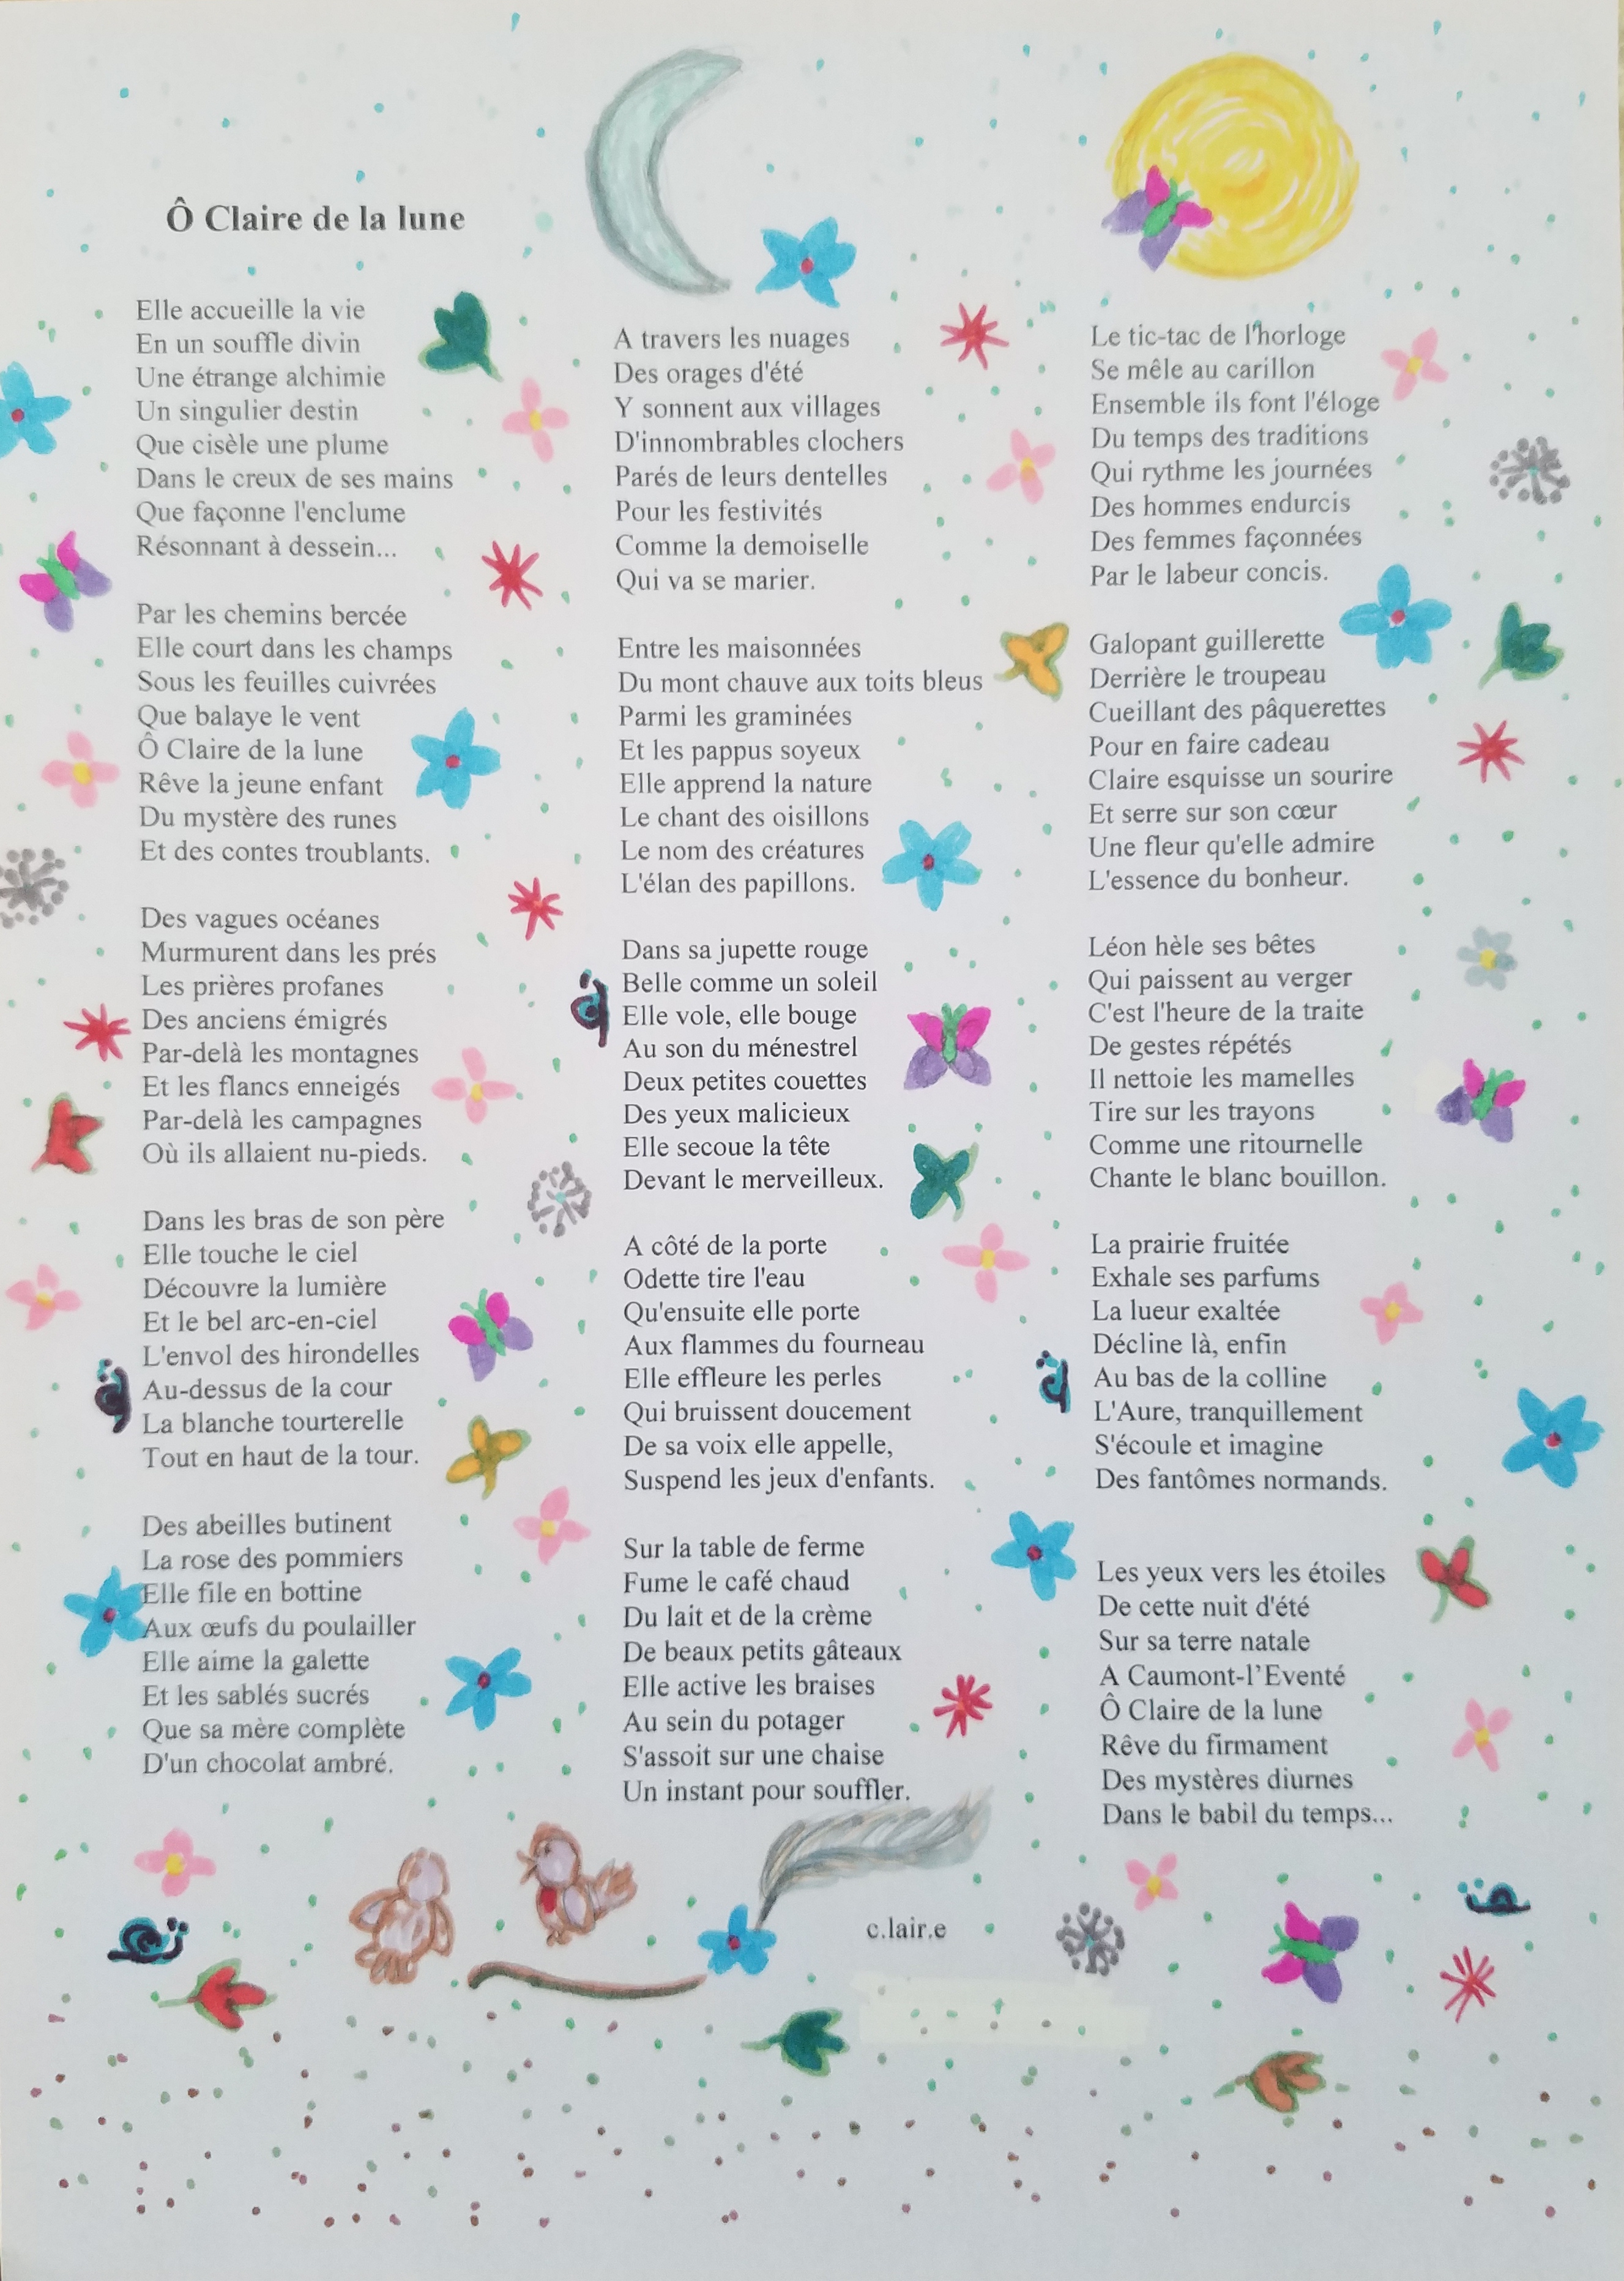 Ô Claire de la lune
Elle accueille la vie
En un souffle divin
Une étrange alchimie
Un singulier destin
Que cisèle une plume
Dans le creux de ses mains
Que façonne l'enclume
Résonnant à dessein...
Par les chemins bercée
Elle court dans les champs
Sous les feuilles cuivrées
Que balaye le vent
Ô Claire de la lune
Rêve la jeune enfant
Du mystère des runes
Et des contes troublants.
Des vagues océanes
Murmurent dans les prés
Les prières profanes
Des anciens émigrés
Par-delà les montagnes
Et les flancs enneigés
Par-delà les campagnes
Où ils allaient nu-pieds.
Dans les bras de son père
Elle touche le ciel
Découvre la lumière
Et le bel arc-en-ciel
L'envol des hirondelles
Au-dessus de la cour
La blanche tourterelle
Tout en haut de la tour.
Des abeilles butinent
La rose des pommiers
Elle file en bottine
Aux œufs du poulailler
Elle aime la galette
Et les sablés sucrés
Que sa mère complète
D'un chocolat ambré.
A travers les nuages
Des orages d'été
Y sonnent aux villages
D'innombrables clochers
Parés de leurs dentelles
Pour les festivités
Comme la demoiselle
Qui va se marier.
Entre les maisonnées
Du mont chauve aux toits bleus
Parmi les graminées
Et les pappus soyeux
Elle apprend la nature
Le chant des oisillons
Le nom des créatures
L'élan des papillons.
Dans sa jupette rouge
Belle comme un soleil
Elle vole, elle bouge
Au son du ménestrel
Deux petites couettes
Des yeux malicieux
Elle secoue la tête
Devant le merveilleux.
A côté de la porte
Odette tire l'eau
Qu'ensuite elle porte
Aux flammes du fourneau
Elle effleure les perles
Qui bruissent doucement
De sa voix elle appelle,
Suspend les jeux d'enfants.
Sur la table de ferme
Fume le café chaud
Du lait et de la crème
De beaux petits gâteaux
Elle active les braises
Au sein du potager
S'assoit sur une chaise
Un instant pour souffler.
Le tic-tac de l'horloge
Se mêle au carillon
Ensemble ils font l'éloge
Du temps des traditions
Qui rythme les journées
Des hommes endurcis
Des femmes façonnées
Par le labeur concis.
Galopant guillerette
Derrière le troupeau
Cueillant des pâquerettes
Pour en faire cadeau
Claire esquisse un sourire
Et serre sur son cœur
Une fleur qu'elle admire
L'essence du bonheur.
Léon hèle ses bêtes
Qui paissent au verger
C'est l'heure de la traite
De gestes répétés
Il nettoie les mamelles
Tire sur les trayons
Comme une ritournelle
Chante le blanc bouillon.
La prairie fruitée
Exhale ses parfums
La lueur exaltée
Décline là, enfin
Au bas de la colline
L'Aure, tranquillement
S'écoule et imagine
Des fantômes normands.
Les yeux vers les étoiles
De cette nuit d'été
Sur sa terre natale
A Caumont-l’Eventé
Ô Claire de la lune
Rêve du firmament
Des mystères diurnes
Dans le babil du temps...
c.lair.e